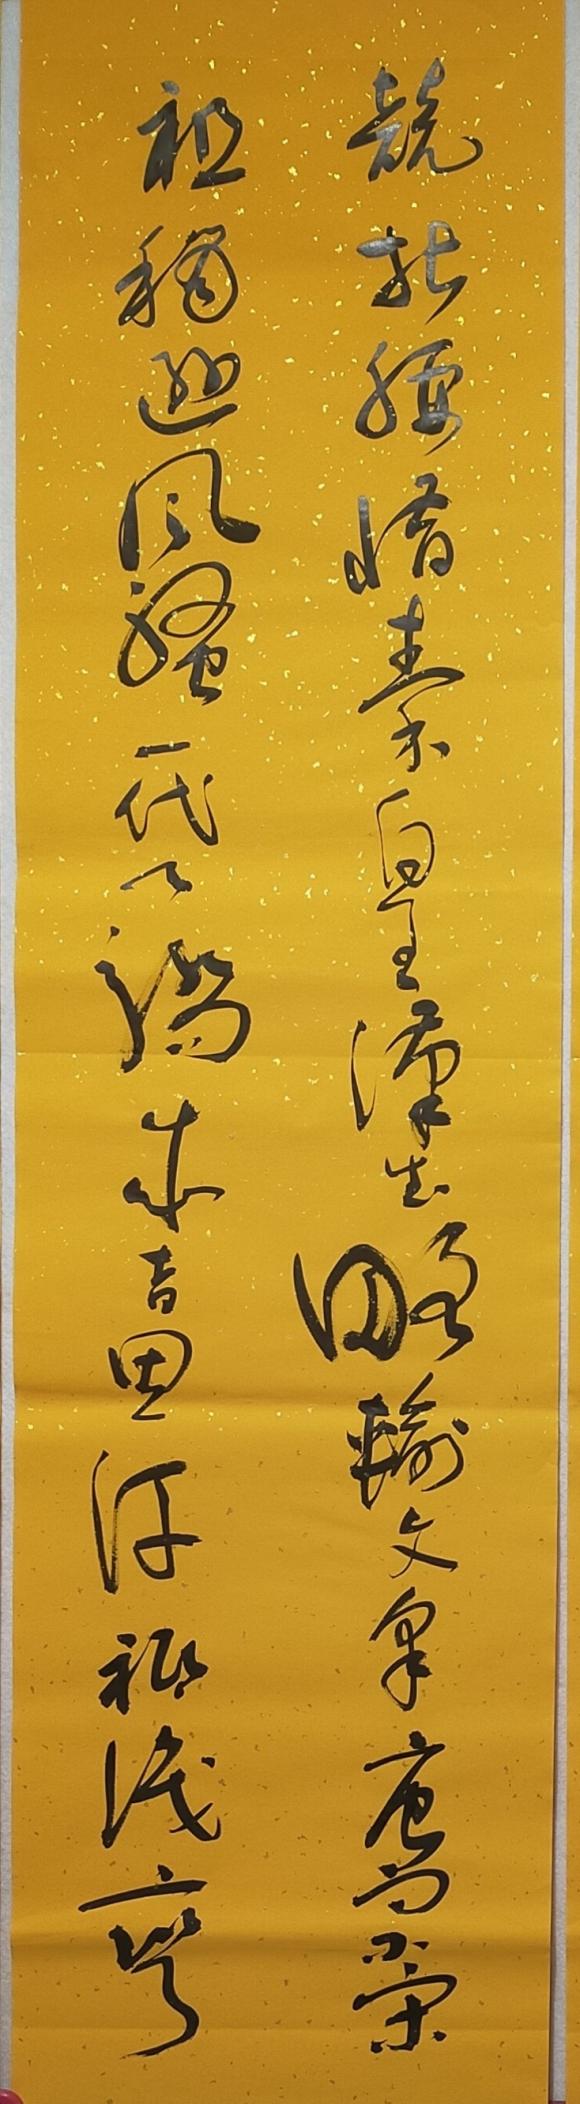 競折腰惜秦皇漢武略輸文采唐宗宋
祖稍遜風騷一代天驕成吉思汗祇識彎